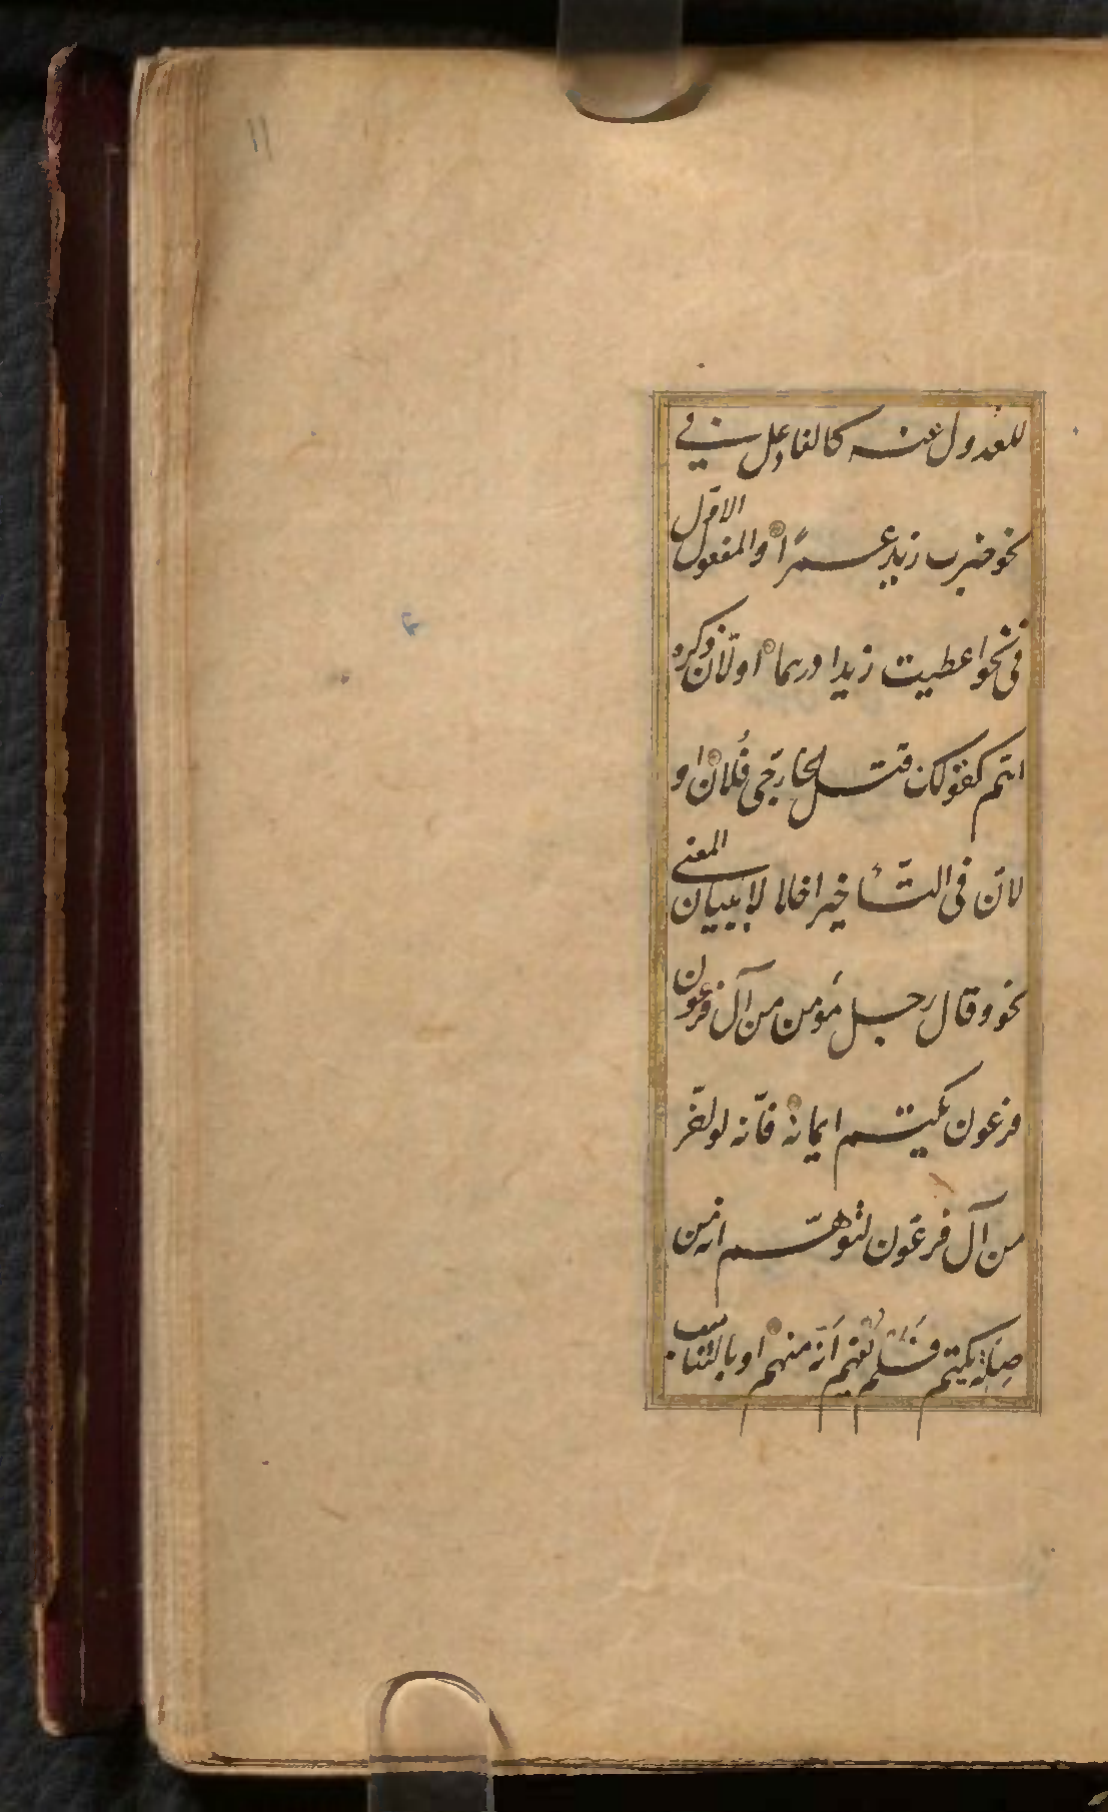 ۱۱
للعدول عنه كالفاعل في
نحو ضرب زيد عمرًا والمفعول الاوّل
فى نحو اعطيت زيدا درهما اولانّ ذكره
اهمّ كقولك قتل الخارجّى فُلان او
لانّ فى التّأخير اخلالا ببيان المعنى
نحو وقال رجل مؤمن من آل فرعون
فرعون يكتم ايمانه فانّه لو اخّر
من آل فرعون لتوهّم انه من
صِلَة يكتم فلم يُفهم انّه منهم او بالتناسب